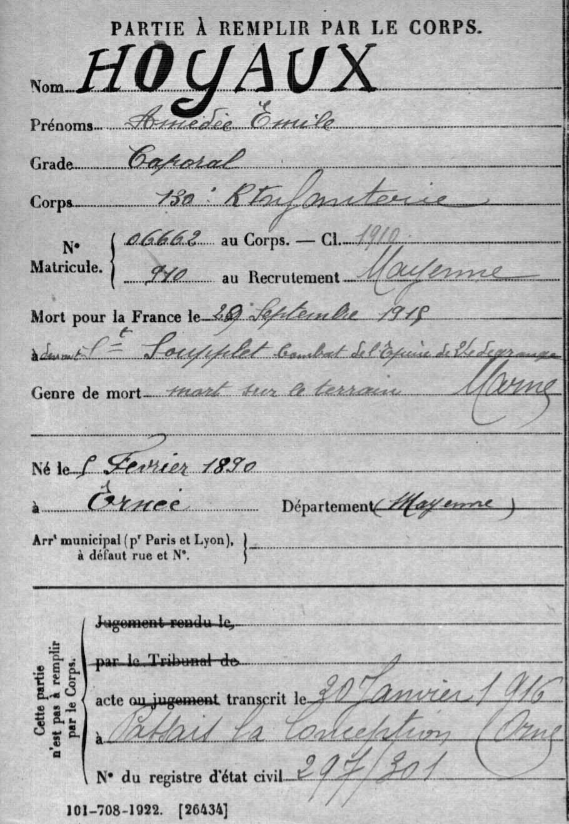 PARTIE À REMPLIR PAR LE CORPS.
Nom HOYAUX
Prénoms Amédée Émile
Grade Caporal
Corps 130e Rt Infanterie
N° Matricule. 06662 au Corps. — Cl. 1910
910 au Recrutement Mayenne
Mort pour la France le 29 Septembre 1915
à devant St Souplet Combat de l'Epine de Vedegrange
Marne
Genre de mort mort sur le terrain
Né le 5 Février 1890
à Ernée Département (Mayenne)
Arrt municipal (pr Paris et Lyon),
à défaut rue et N°.
Cette partie n'est pas à remplir par le Corps.
Jugement rendu le,
par le Tribunal de
acte ou jugement transcrit le 20 Janvier 1916
à Passais la Conception Orne
N° du registre d'état civil 297/301
101-708-1922. [26434]